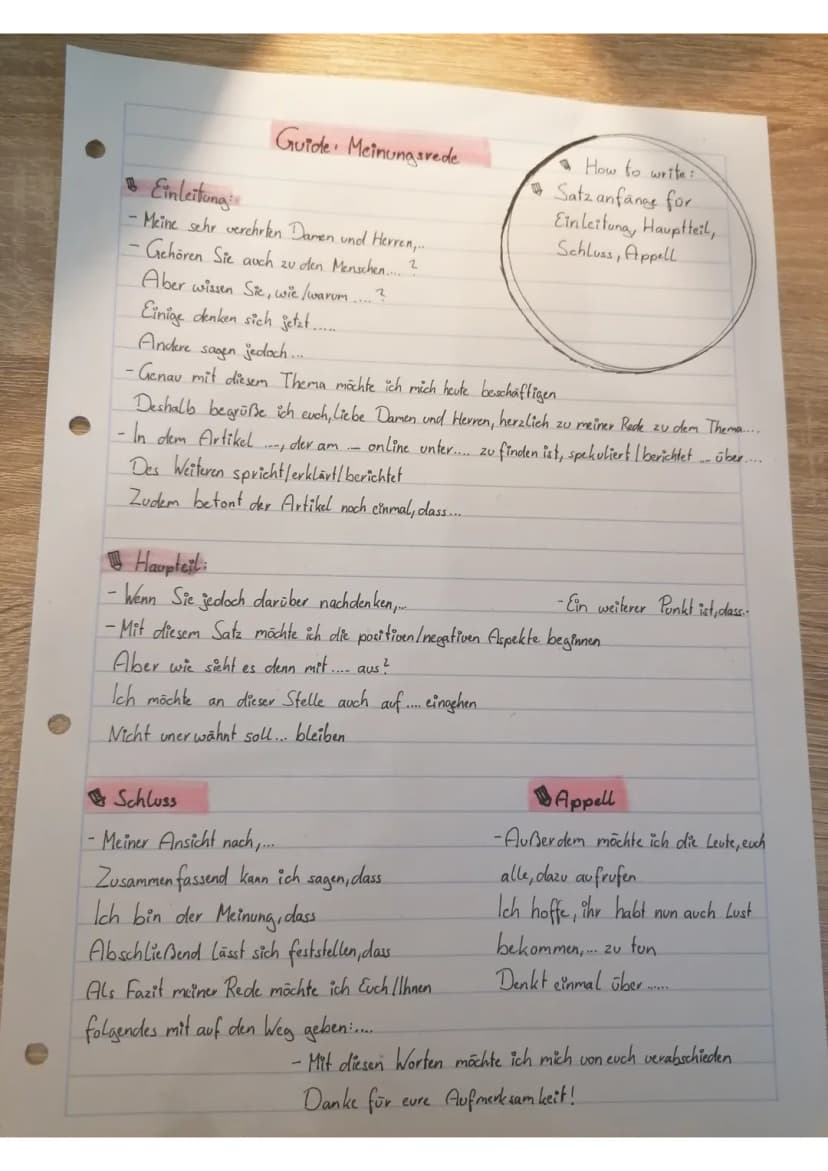 Guide: Meinungsrede
How to write:
Satzanfänge für
Einleitung, Hauptteil,
Schluss, Appell
Einleitung:
- Meine sehr verehrten Damen und Herren,..
- Gehören Sie auch zu den Menschen.... ?
Aber wissen Sie, wie/warum .... ?
Einige denken sich jetzt.....
Andere sagen jedoch...
- Genau mit diesem Thema möchte ich mich heute beschäftigen
Deshalb begrüße ich euch, liebe Damen und Herren, herzlich zu meiner Rede zu dem Thema....
- In dem Artikel ...., der am ... online unter.... zu finden ist, spekuliert/berichtet ... über....
Des Weiteren spricht/erklärt/berichtet
Zudem betont der Artikel noch einmal, dass...
Haupteil:
- Wenn Sie jedoch darüber nachdenken,... - Ein weiterer Punkt ist, dass..
- Mit diesem Satz möchte ich die positiven/negativen Aspekte beginnen
Aber wie sieht es denn mit.... aus?
Ich möchte an dieser Stelle auch auf.... eingehen
Nicht unerwähnt soll... bleiben
Schluss
- Meiner Ansicht nach,...
Zusammenfassend kann ich sagen, dass
Ich bin der Meinung, dass
Abschließend lässt sich feststellen, dass
Als Fazit meiner Rede möchte ich Euch/Ihnen
folgendes mit auf den Weg geben:....
Appell
- Außerdem möchte ich die Leute, euch
alle, dazu aufrufen
Ich hoffe, ihr habt nun auch Lust
bekommen,... zu tun
Denkt einmal über.....
- Mit diesen Worten möchte ich mich von euch verabschieden
Danke für eure Aufmerksamkeit!